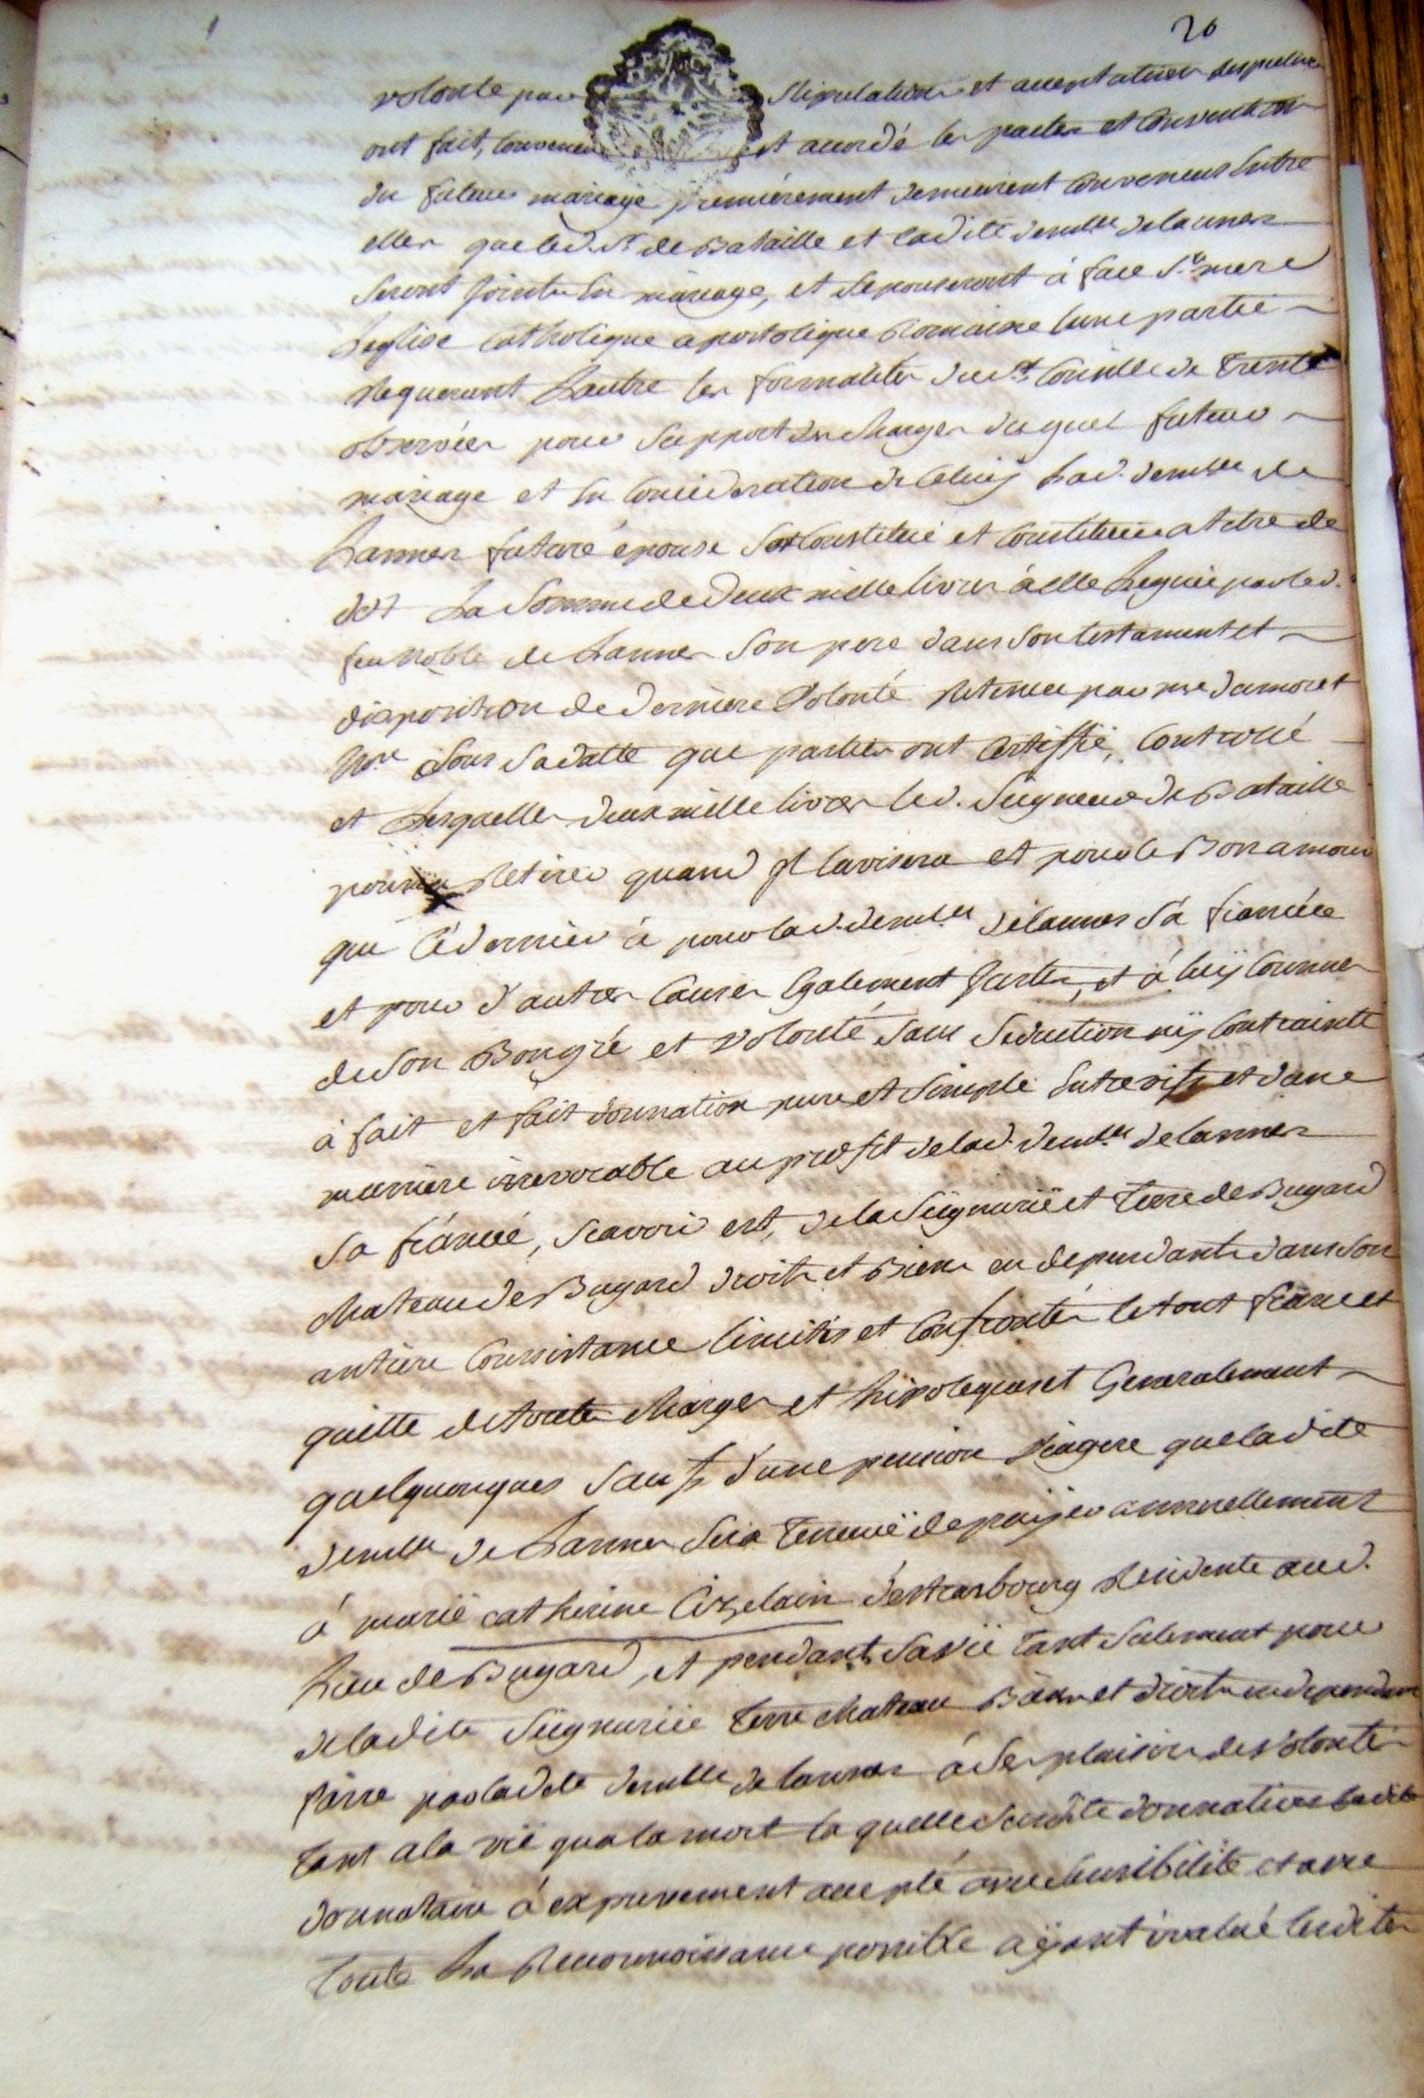 20
volonte par stipulation et acceptation
ont fait, convenu et accordé les pactes et Convention
du futeur mariage premiérement demeurent Conveneus Entre
elles que led. Sr. de Bataille et ladite demlle delannes
Seront joints En mariage, et Sepouseront à face Ste. mere
Leglise Catholique apostolique Romaine Lune partie
Requerant Lautre les formalités du St. Concille de Trente
observées pour Support des Charges duquel futeur
mariage et En Consideration de Celuy Lad. demlle de
Lannes future épouse Sest Constitué et Constitue a titre de
dot La Somme de Deux mille livres à elle Leguée par led.
feu Noble de Lannes Son pere dans Son testament et
disposition de derniere Volonté Retenu par me damoret
Nre. Sous Sa datte que parties ont Certiffié, Controllé
et Lesquelles deux mille livres led. Seigneur de Bataille
pourra Retirer quand Il lavisera et pour le Bon amour
que Cé dernier à pour lad. demlle. délannes Sa fiancée
et pour d'autres Causes Egalement Justes, et à luy Connues
de Son Bongré et Volonté, Sans Seduction ny Contrainte
à fait et fait donnation pure et Simple Entre vifs et dune
maniere irrevocable au profit delad. demlle. delannes
Sa fiancée, Scavoir est, dela Seigneurie et Terre de Bugard
Chateau de Bugard droits et Biens en dependants dans Son
antiere Consistance limites et Confrontés le tout franc et
quitte de toute Charges et hipoteques et Generalement
quelquonques Sauf d'une pension Viagere que ladite
demlle de Lannes Sera Tenuë de payer annuellement
à marië catherine Cizelain déstrasbourg Residente aud.
Lieu de Bugard, et pendant Sa vië tant Seulement pour
deladite Seigneurie Terre Chateau Biens et droits en dependants
faire par ladite demlle de lannes à Ses plaisirs de Volonté
Tant a la vië qua la mort la quelle Susdite donnation Ladite
donnataire à expressement accepté avec Sensibilité et avec
Toute La Reconnoissance possible aÿant évalué Lesdites